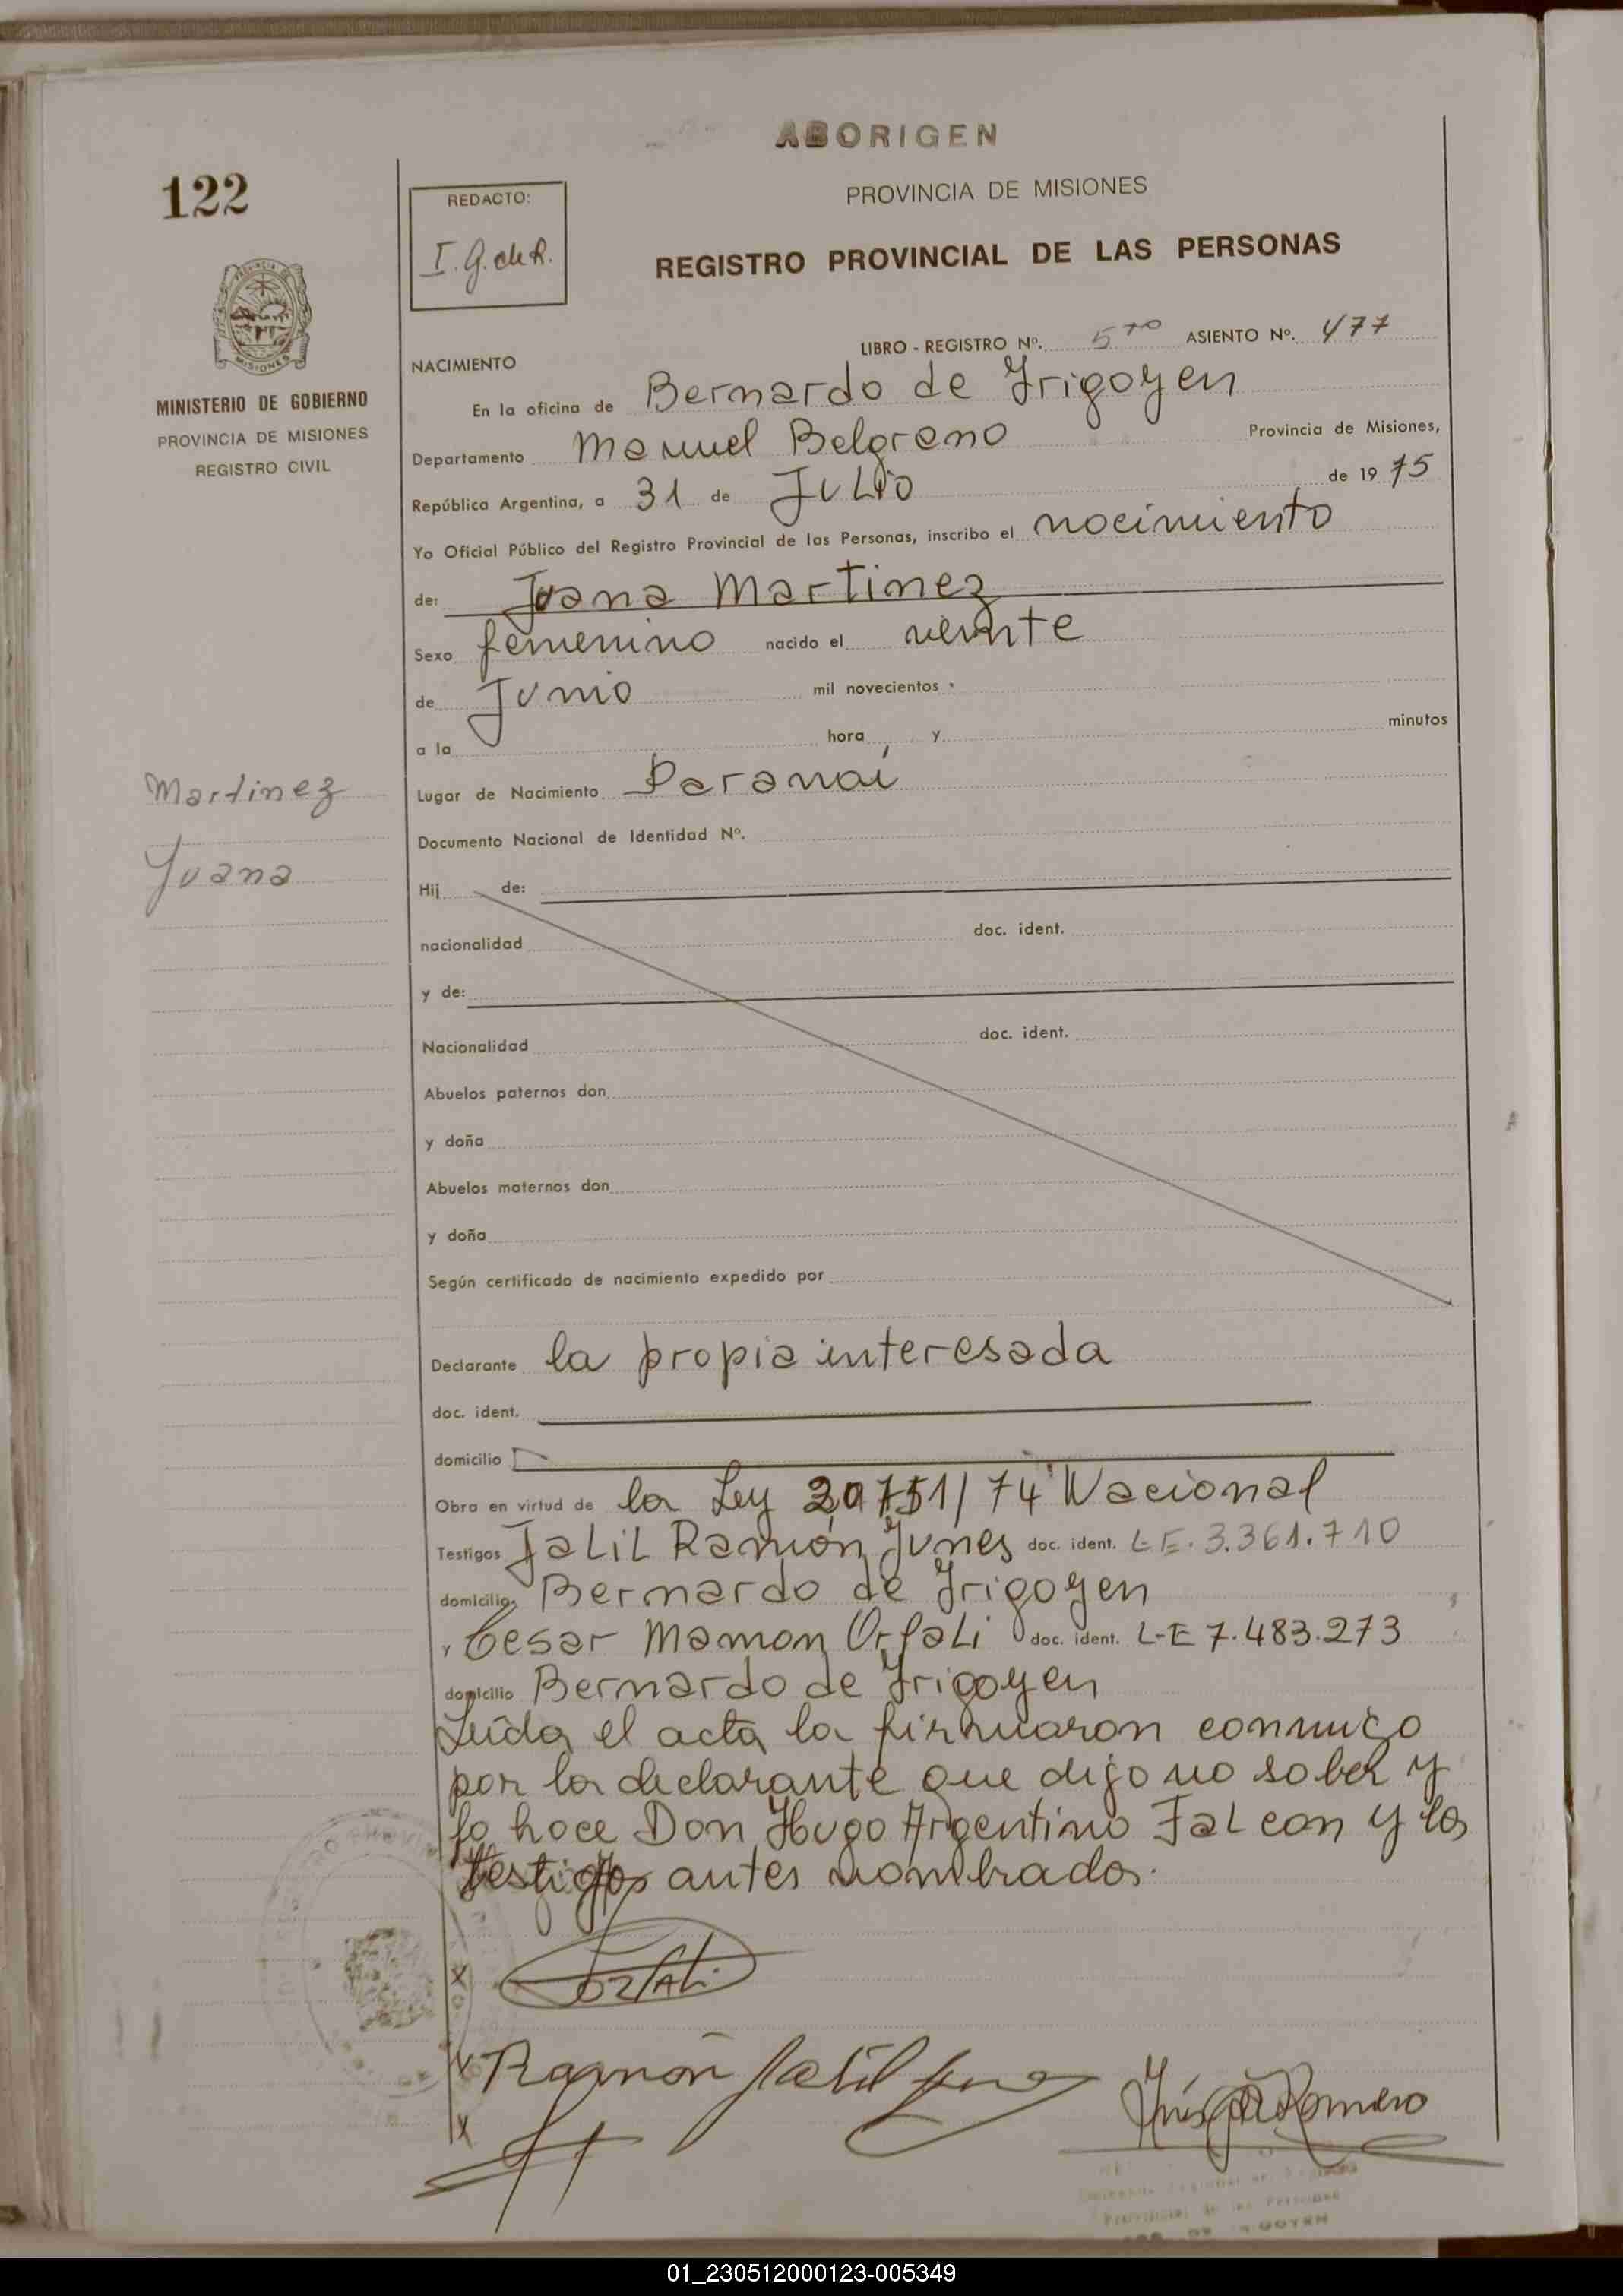 ABORIGEN
122
REDACTO:
I. G. de R.
PROVINCIA DE MISIONES
REGISTRO PROVINCIAL DE LAS PERSONAS
PROVINCIA DE
MISIONES
MINISTERIO DE GOBIERNO
PROVINCIA DE MISIONES
REGISTRO CIVIL
LIBRO - REGISTRO Nº. 5to ASIENTO Nº. 477
NACIMIENTO
En la oficina de Bernardo de Yrigoyen
Departamento Manuel Belgrano Provincia de Misiones,
República Argentina, a 31 de Julio de 19 75
Yo Oficial Público del Registro Provincial de las Personas, inscribo el nacimiento
de: Juana Martinez
Sexo femenino nacido el veinte
de Junio mil novecientos
a la hora y minutos
Lugar de Nacimiento Paranaí
Martinez
Juana
Documento Nacional de Identidad Nº.
Hij de:
nacionalidad doc. ident.
y de:
Nacionalidad doc. ident.
Abuelos paternos don
y doña
Abuelos maternos don
y doña
Según certificado de nacimiento expedido por
Declarante la propia interesada
doc. ident.
domicilio
Obra en virtud de la Ley 20751/74 Nacional
Testigos Jalil Ramón Yunes doc. ident. L-E. 3.361.710
domicilio Bernardo de Yrigoyen
y Cesar Mamon Orfali doc. ident. L-E 7.483.273
domicilio Bernardo de Yrigoyen
Leída el acta la firmaron conmigo
por la declarante que dijo no saber y
lo hace Don Hugo Argentino Falcon y los
testigos antes nombrados.
Orfali
Ramón Jalil Yunes
Inés G. de Romero
01_230512000123-005349